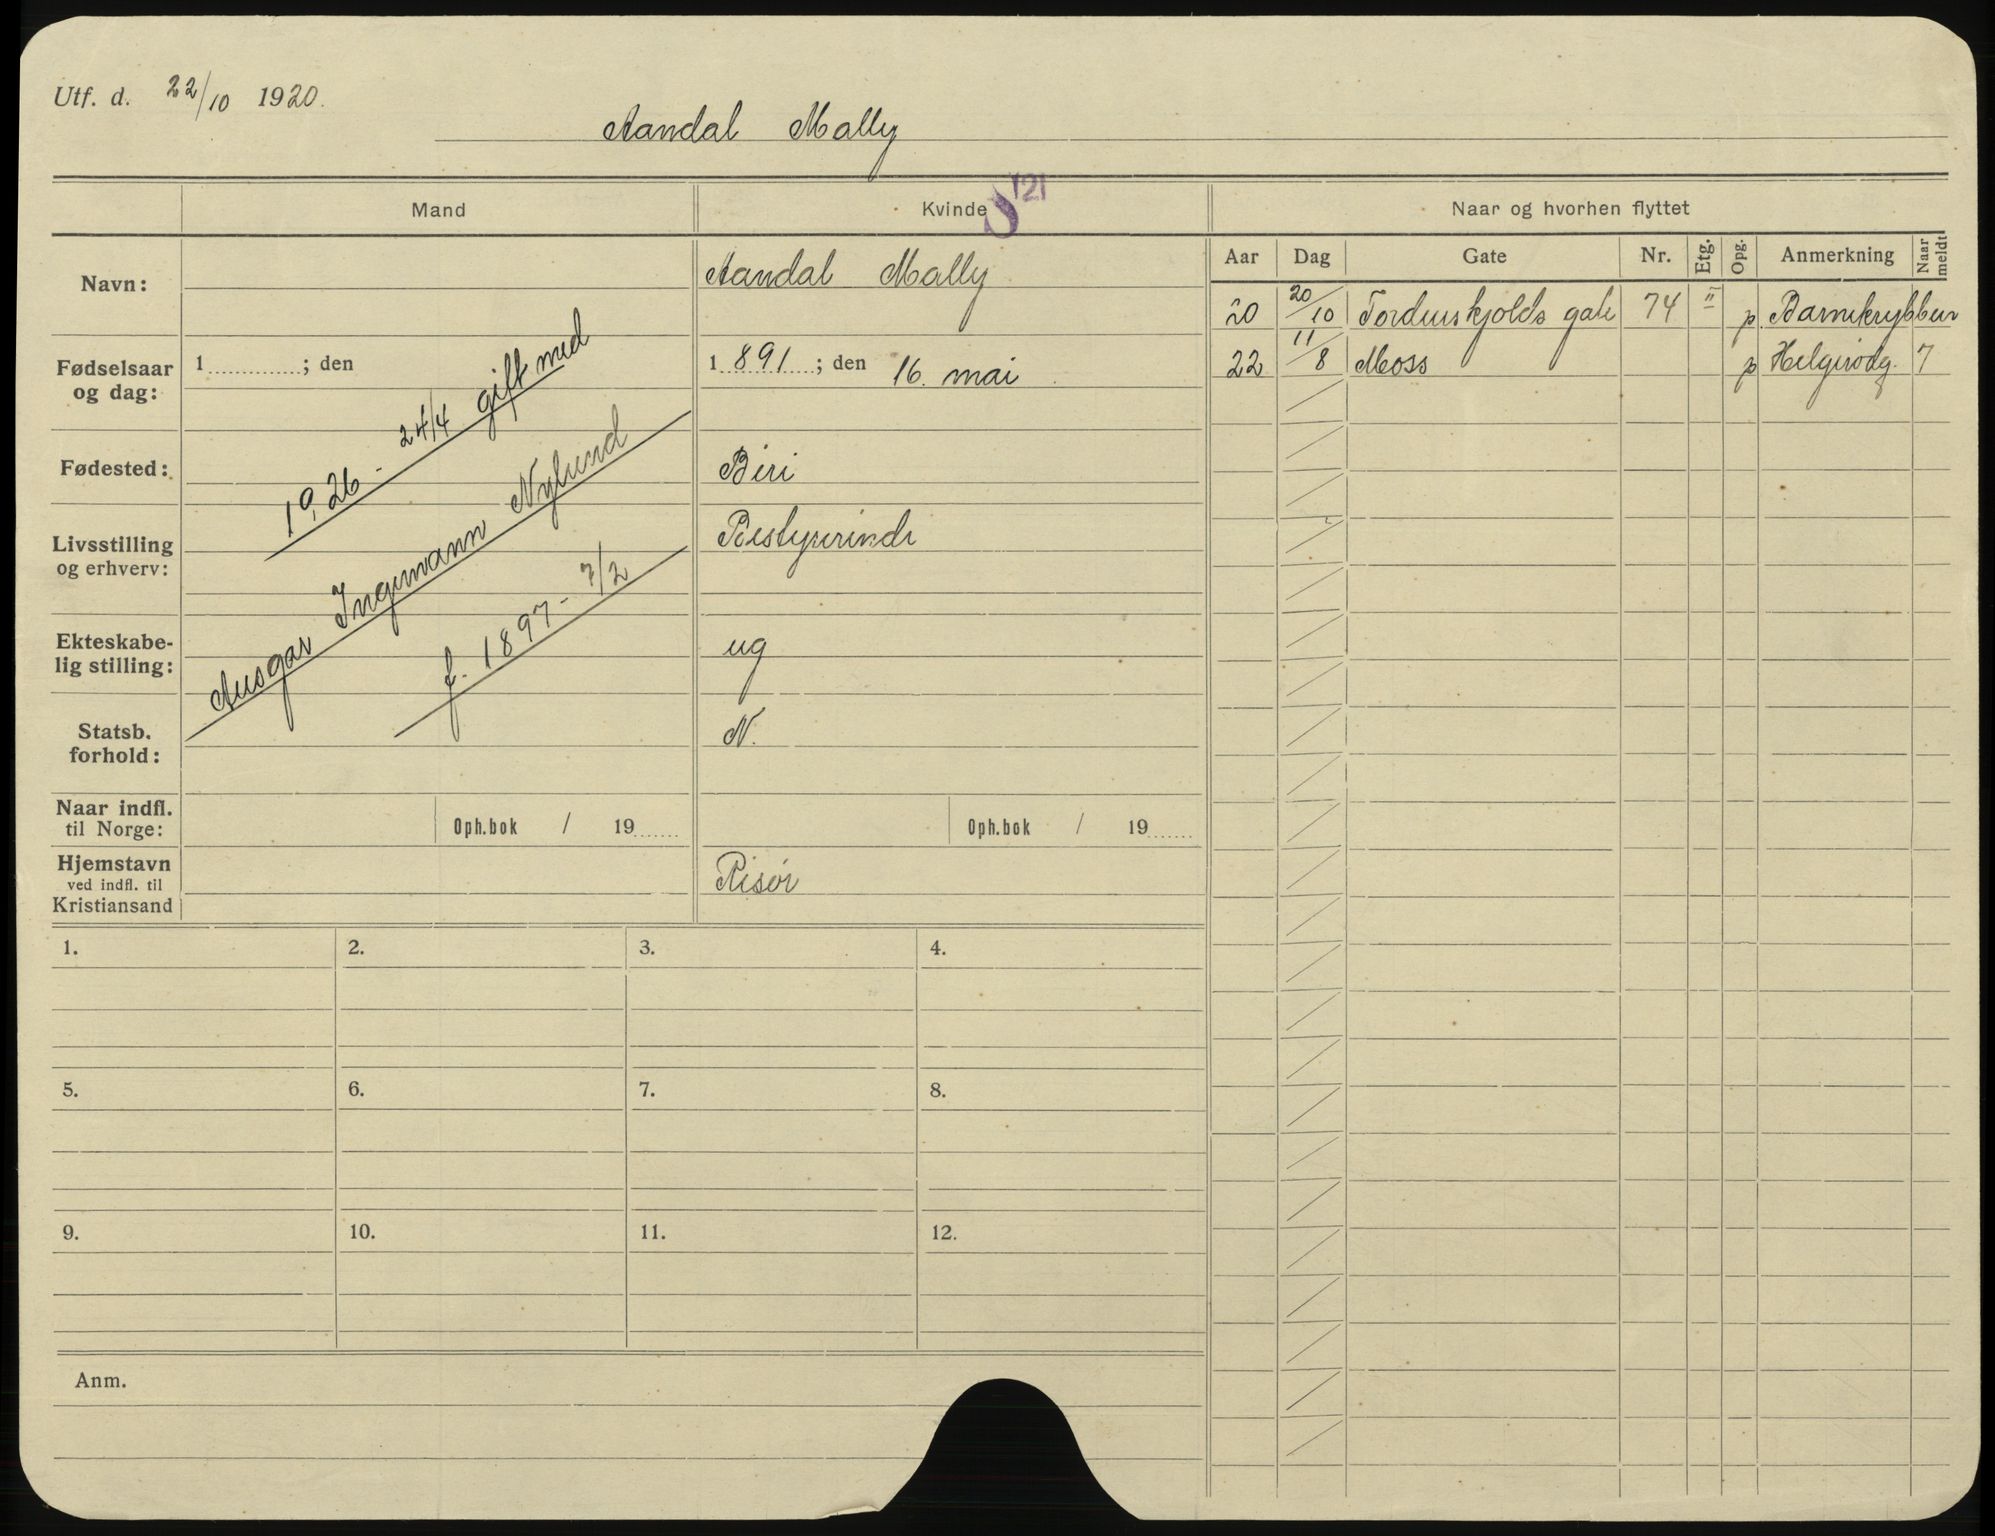 Utf. d. 22/10 1920.
Aandal Mally
Mand Kvinde Naar og hvorhen flyttet
S '21
Aar Dag Gate Nr. Etg. Opg. Anmerkning Naar meldt
Navn: Aandal Mally
20 20/10 Tordenskjolds gate 74 " p. Barnekrybben
22 11/8 Moss p Helgerødg. 7
Fødselsaar og dag: 1 ; den 1891 ; den 16. mai
Fødested: Biri
Livsstilling og erhverv: Bestyrerinde
Ekteskabelig stilling: ug
Statsb. forhold: N.
1926 - 24/4 gift med
Ansgar Ingemann Nylund
f. 1897 - 7/2
Naar indfl. til Norge: Oph.bok / 19 Oph.bok / 19
Hjemstavn ved indfl. til Kristiansand Risør
1. 2. 3. 4.
5. 6. 7. 8.
9. 10. 11. 12.
Anm.